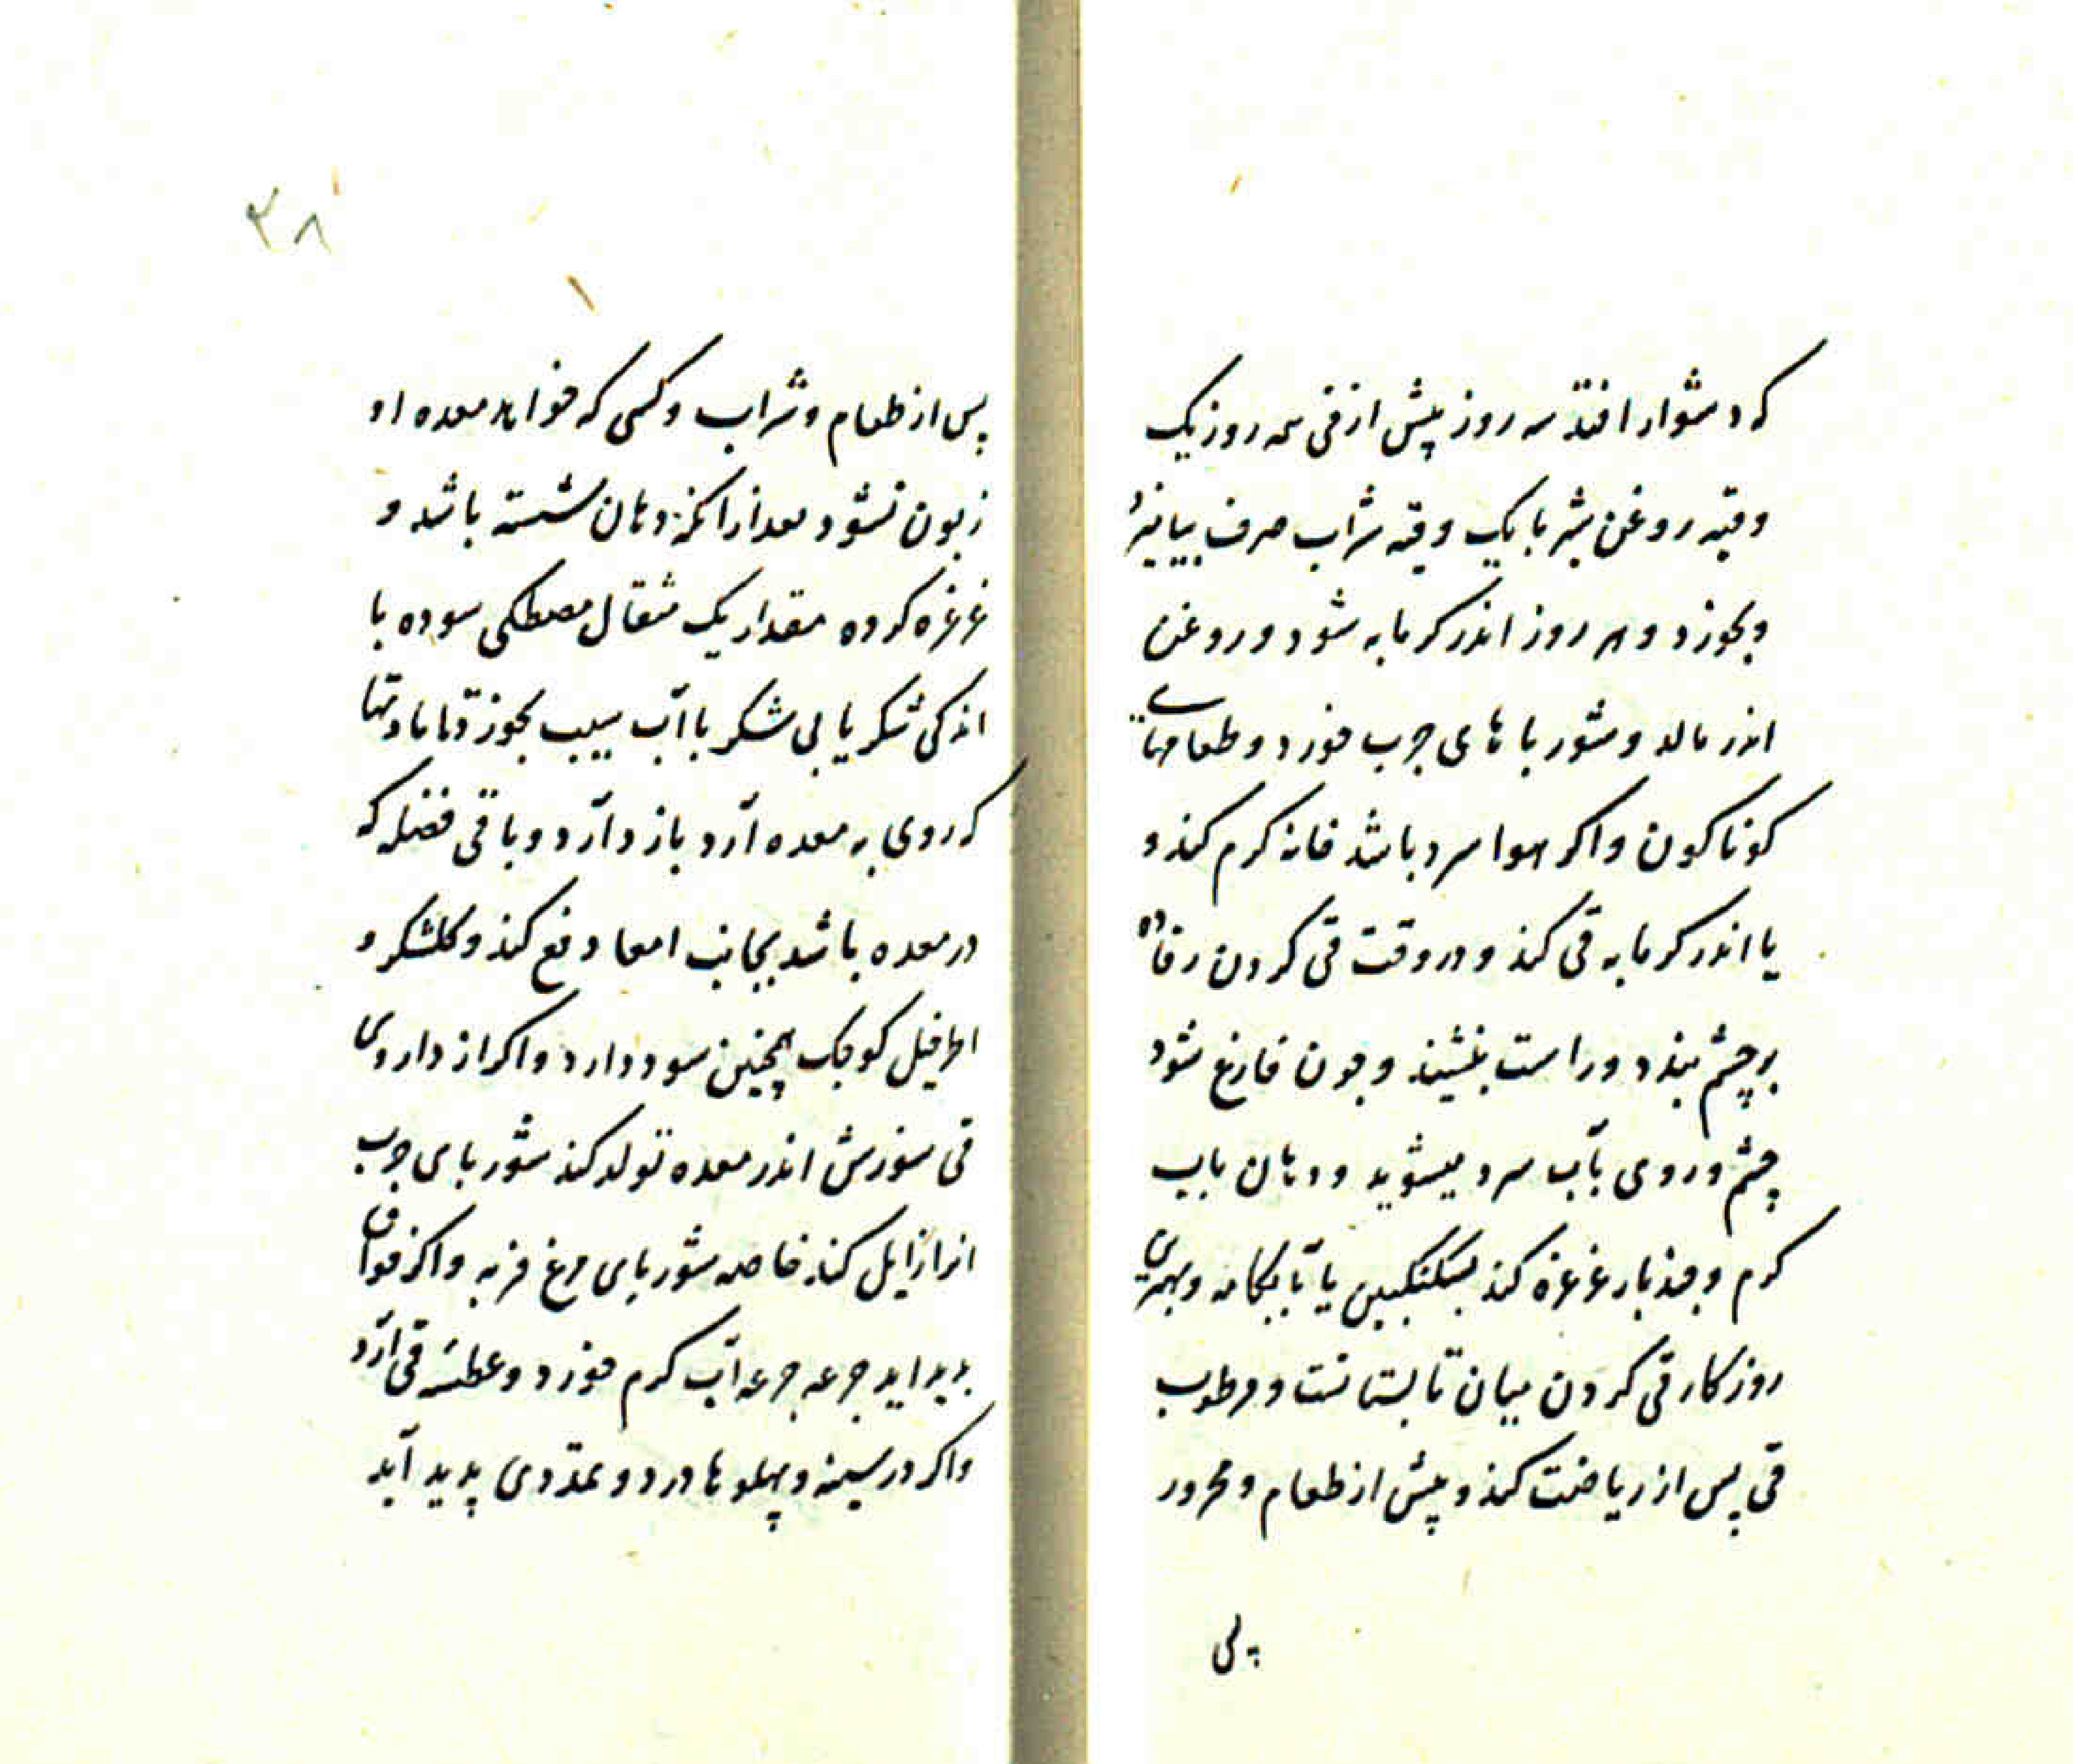 که دشوار افتد سه روز پیش از قی سه روز یک
وقیه روغن بشیر با یک وقیه شراب صرف بیامیزد
و بخورد و هر روز اندر کرمابه شود و روغن
اندر مالد و شوربا های چرب خورد و طعامهای
کوناکون و اکر هوا سرد باشد خانه کرم کند و
یا اندر کرمابه قی کند و در وقت قی کردن رفاده
بر چشم بندد و راست بنشیند و چون فارغ شود
چشم و روی بآب سرد میشوید و دهان بآب
کرم و چند بار غرغره کند بسکنکبین یا بآبکامه و بهترین
روزکار قی کردن میان تابستانست و مرطوب
قی پس از ریاضت کند و پیش از طعام و محرور
پس
۳۸
پس از طعام و شراب و کسی که خواهد معده او
زبون نشود بعد از انکه دهان شسته باشد و
غرغره کرده مقدار یک مثقال مصطکی سوده با
اندکی شکر یا بی شکر با آب سیب بخورد تا مادتها
که روی به معده آرد باز دارد و باقی فضله که
در معده باشد بجانب امعا دفع کند و کلشکر و
اطریفل کوچک همچنین سود دارد و اکر از داروی
قی سوزش اندر معده تولد کند شوربای چرب
انرا زایل کند خاصه شوربای مرغ فربه و اکر فواق
پدید اید جرعه جرعه آب کرم خورد و عطسه قی آرد
و اکر در سینه و پهلوها درد و تمددی پدید آید